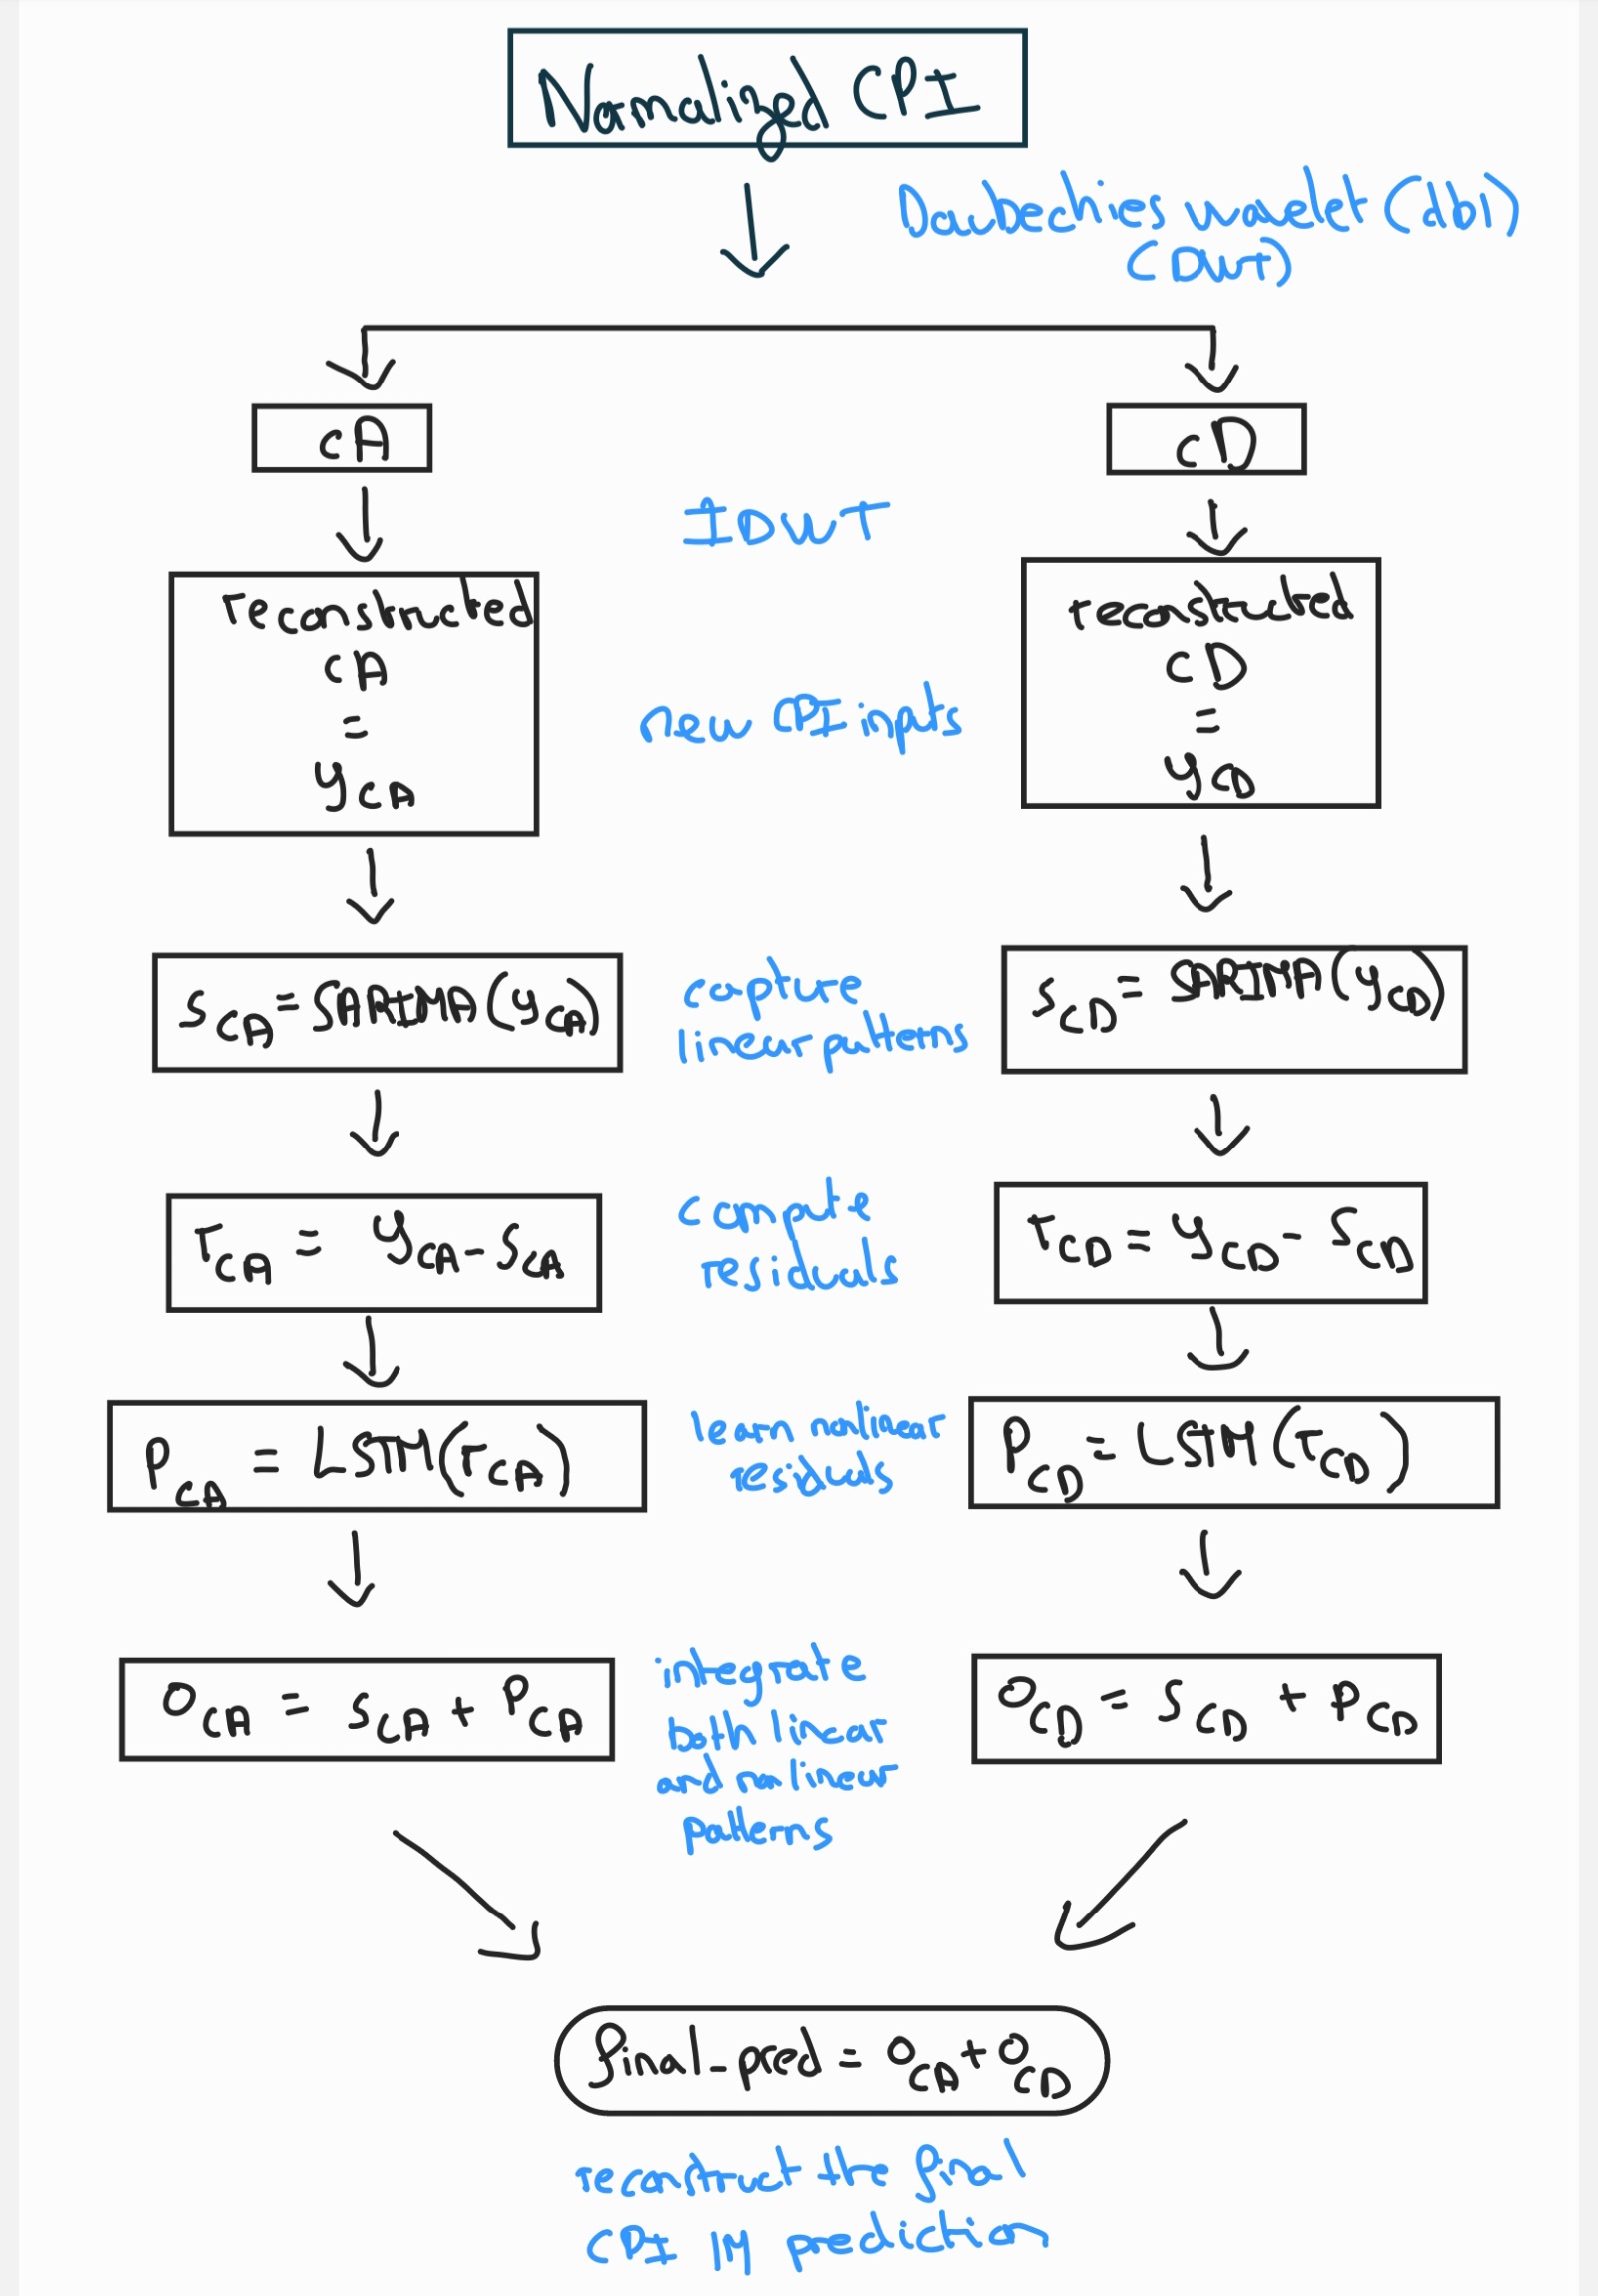 Normalized CPI
Daubechies wavelet (db1)
(DWT)
cA
cD
IDWT
reconstructed
cA
=
y_cA
reconstructed
cD
=
y_cD
new CPI inputs
s_cA = SARIMA(y_cA)
capture
linear patterns
s_cD = SARIMA(y_cD)
r_cA = y_cA - s_cA
compute
residuals
r_cD = y_cD - s_cD
p_cA = LSTM(r_cA)
learn nonlinear
residuals
p_cD = LSTM(r_cD)
o_cA = s_cA + p_cA
integrate
both linear
and nonlinear
patterns
o_cD = s_cD + p_cD
final_pred = o_cA + o_cD
reconstruct the final
CPI 1M prediction